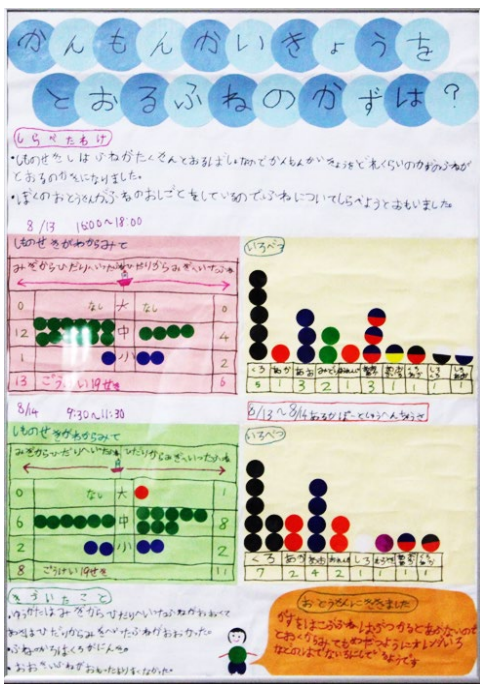 かんもんかいきょうを
とおるふねのかずは?
しらべたわけ
・しものせきしはふねがたくさんとおるばしょなのでかんもんかいきょうをどれくらいのかずのふねが
とおるのかきになりました。
・ぼくのおとうさんがふねのおしごとをしているのでふねについてしらべようとおもいました。
8/13 16:00~18:00
しものせきがわからみて
みぎからひだりへいったふね ひだりからみぎへいったふね
0 なし 大 なし 0
12 中 4
1 小 2
13 ごうけい19せき 6
いろべつ
くろ あか あお みどり
5 1 3 2 1 3 1 1 1 1
8/14 9:30~11:30
8/13~8/14あるかぽーとしゅうへんちょうさ
しものせきがわからみて
みぎからひだりへいったふね ひだりからみぎへいったふね
0 なし 大 1
6 中 8
2 小 2
8 ごうけい19せき 11
いろべつ
くろ あか あお しろ
7 2 4 2 1 1 1 1
きづいたこと
・ゆうがたはみぎからひだりへいったふねがおおくて
あさはひだりからみぎへいったふねがおおかった。
・ふねのいろはくろがにんき。
・おおきいふねが
おとうさんにききました
かずをはこぶふねはぶつかるとあぶないので
とおくからみてもめだつように